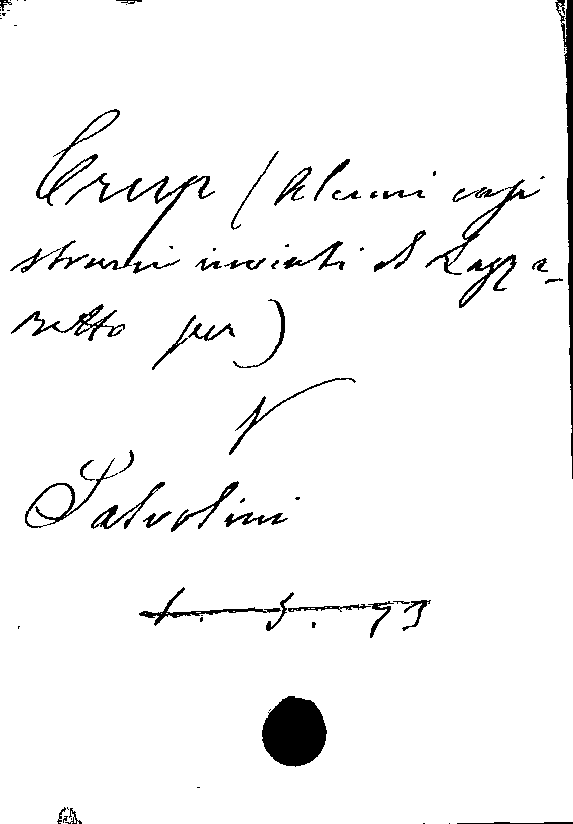 Crup (Alcuni casi
strani inviati al Lazza-
retto per)
V
Salvolini
1. 5. 93